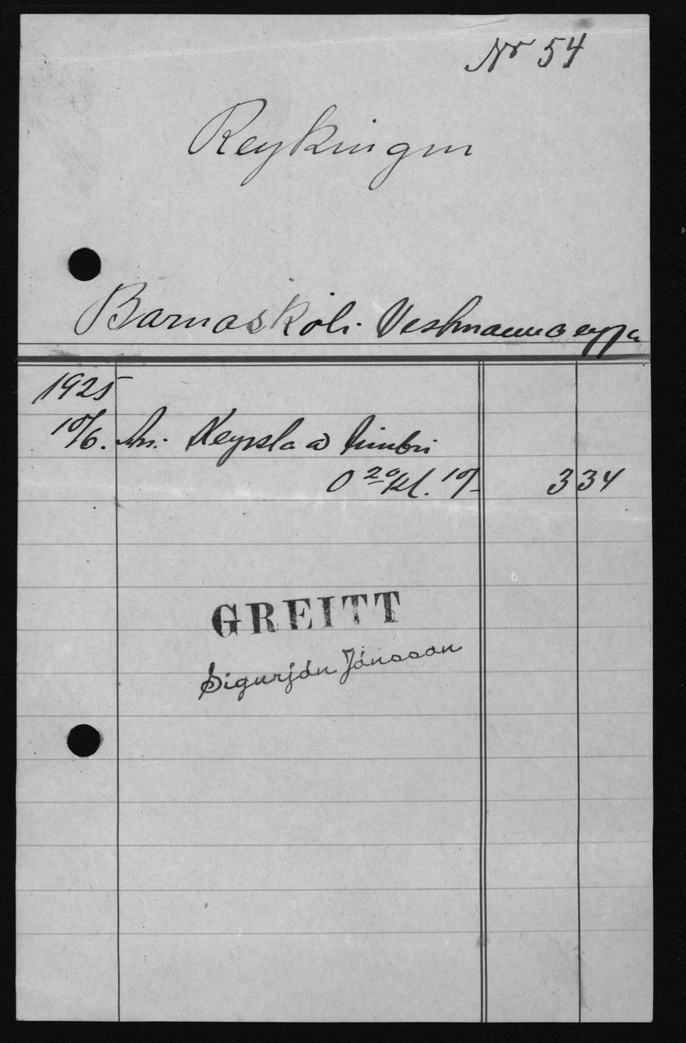 Nr 54
Reykingur
Barnaskóli Vestmannaeyja
1925
10/6. Keyrsla á timbri
0 20/kl.
3 34
GREITT
Sigurjón Jónsson